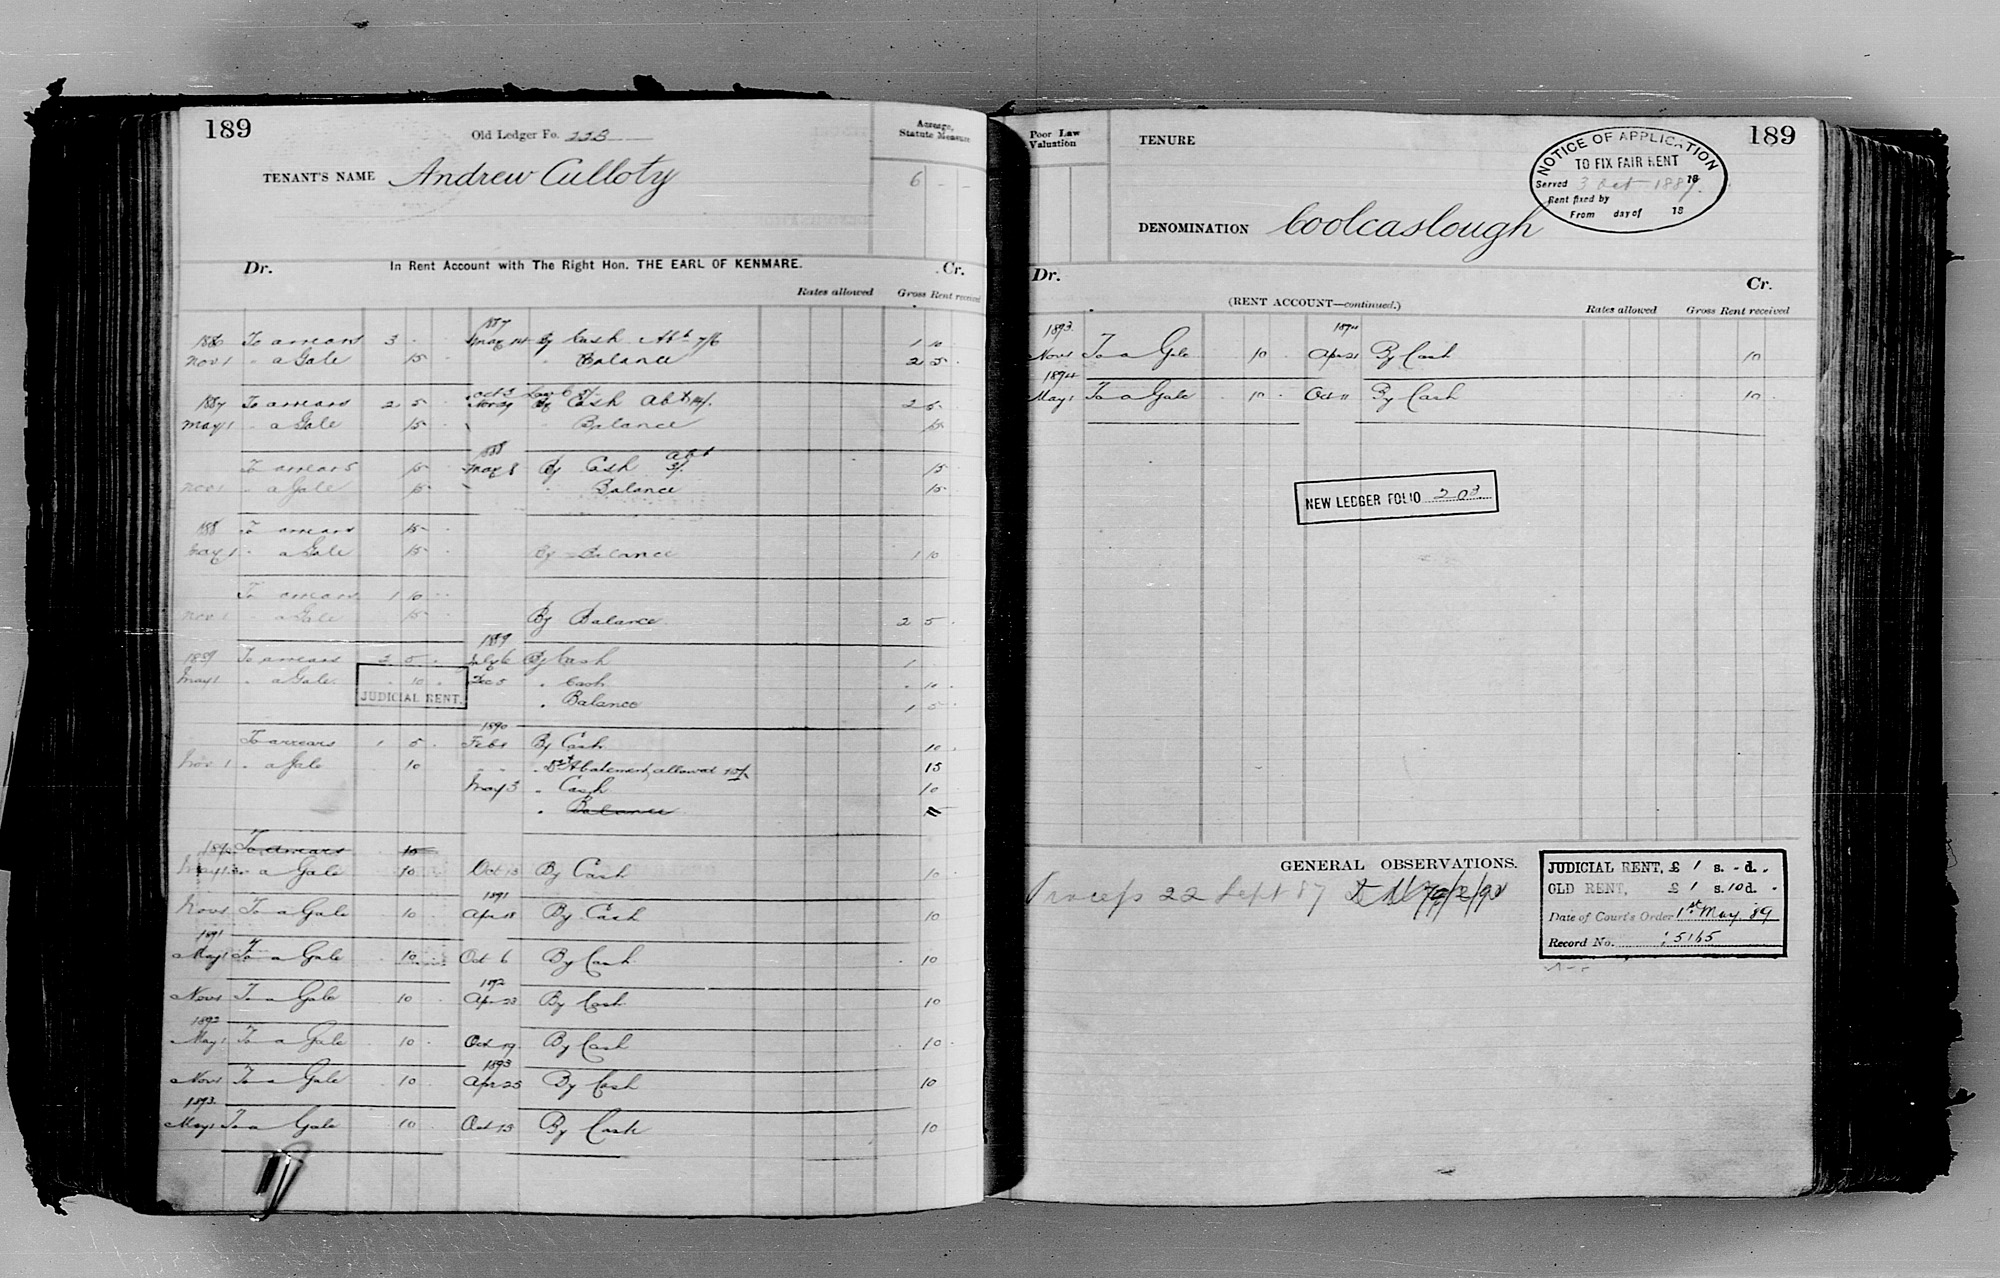 189
Old Ledger Fo. 223
Acreage, Statute Measure
TENANT'S NAME Andrew Culloty
6 - -
Dr. In Rent Account with The Right Hon. THE EARL OF KENMARE. Cr.
Rates allowed Gross Rent received
1887
1886 To arrears 3 - May 14 By Cash Abt 7/6 1 10
Nov 1 " a Gale 15 " Balance 2 5
Oct 5
1887 To arrears 2 5 Nov 29 By Cash Abt 14/. 2 5
May 1 " a Gale 15 " Balance 15
1888
To arrears 15 May 8 By Cash Abt 3/. 15
Nov 1 " a Gale 15 " Balance 15
188 To arrears 15
May 1 " a Gale 15 By Balance 1 10
To arrears 1 10
Nov 1 " a Gale 15 By Balance 2 5
1889
1889 To arrears 2 5 July 6 By Cash 1
May 1 " a Gale 10 Dec 5 " Cash 10
JUDICIAL RENT. " Balance 1 5
1890
To arrears 1 5 Feb 1 By Cash 10
Nov 1 " a Gale 10 " " Abatement allowed 15/- 15
May 3 " Cash 10
" Balance
1890 To arrears 15
May 1 " a Gale 10 Oct 13 By Cash 10
1891
Nov 1 To a Gale 10 Apr 18 By Cash 10
1891
May 1 To a Gale 10 Oct 6 By Cash 10
1892
Nov 1 To a Gale 10 Apr 23 By Cash 10
1892
May 1 To a Gale 10 Oct 19 By Cash 10
1893
Nov 1 To a Gale 10 Apr 25 By Cash 10
1893
May 1 To a Gale 10 Oct 13 By Cash 10
Poor Law Valuation
TENURE
189
NOTICE OF APPLICATION
TO FIX FAIR RENT
Served 3 Oct 1887. 18
Rent fixed by
From day of 18
DENOMINATION Coolcaslough
Dr. Cr.
(RENT ACCOUNT—continued.)
Rates allowed Gross Rent received
1893 1894
Nov 1 To a Gale 10 Apr 21 By Cash 10
1894
May 1 To a Gale 10 Oct 11 By Cash 10
NEW LEDGER FOLIO 203
GENERAL OBSERVATIONS.
Process 22 Sept 87
JUDICIAL RENT, £ 1 s. - d. -
OLD RENT, £ 1 s. 10 d. -
Date of Court's Order 1st May '89
Record No. 5165